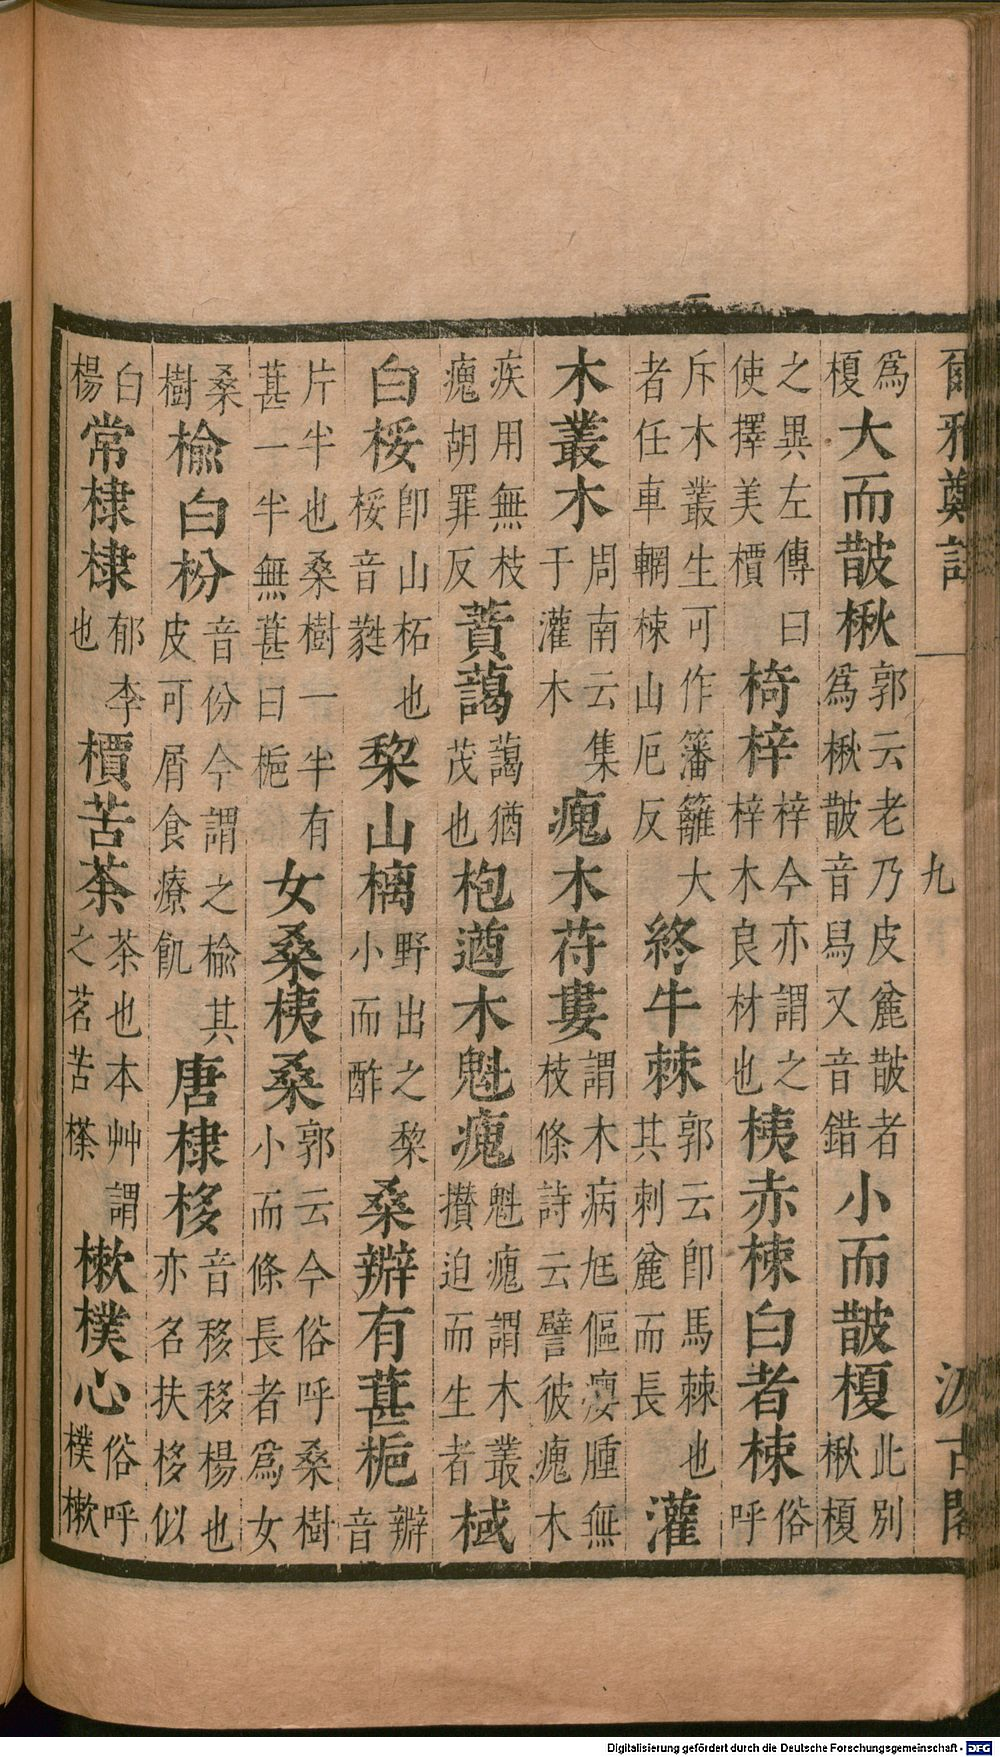 爾雅鄭註 九 汲古閣
為榎大而皵楸郭云老乃皮麄皵者為楸皵音舄又音錯小而皵榎此別楸榎
之異左傳曰使擇美檟椅梓梓今亦謂之梓木良材也桋赤楝白者楝俗呼
斥木叢生可作籓籬大者任車輞楝山厄反終牛棘郭云卽馬棘也其刺麄而長灌
木叢木周南云集于灌木瘣木苻婁謂木病尫傴癭腫無枝條詩云譬彼瘣木
疾用無枝瘣胡罪反蕡藹藹猶茂也枹遒木魁瘣魁瘣謂木叢攢迫而生者棫
白桵卽山柘也桵音蕤棃山樆野出之棃小而酢桑辧有葚梔辧音
片半也桑樹一半有葚一半無葚曰梔女桑桋桑郭云今俗呼桑樹小而條長者為女
桑樹榆白枌音份今謂之榆其皮可屑食療飢唐棣栘音移栘楊也亦名扶栘似
白楊常棣棣郁李也檟苦荼荼也本艸謂之茗苦𣘻樕樸心俗呼樸樕